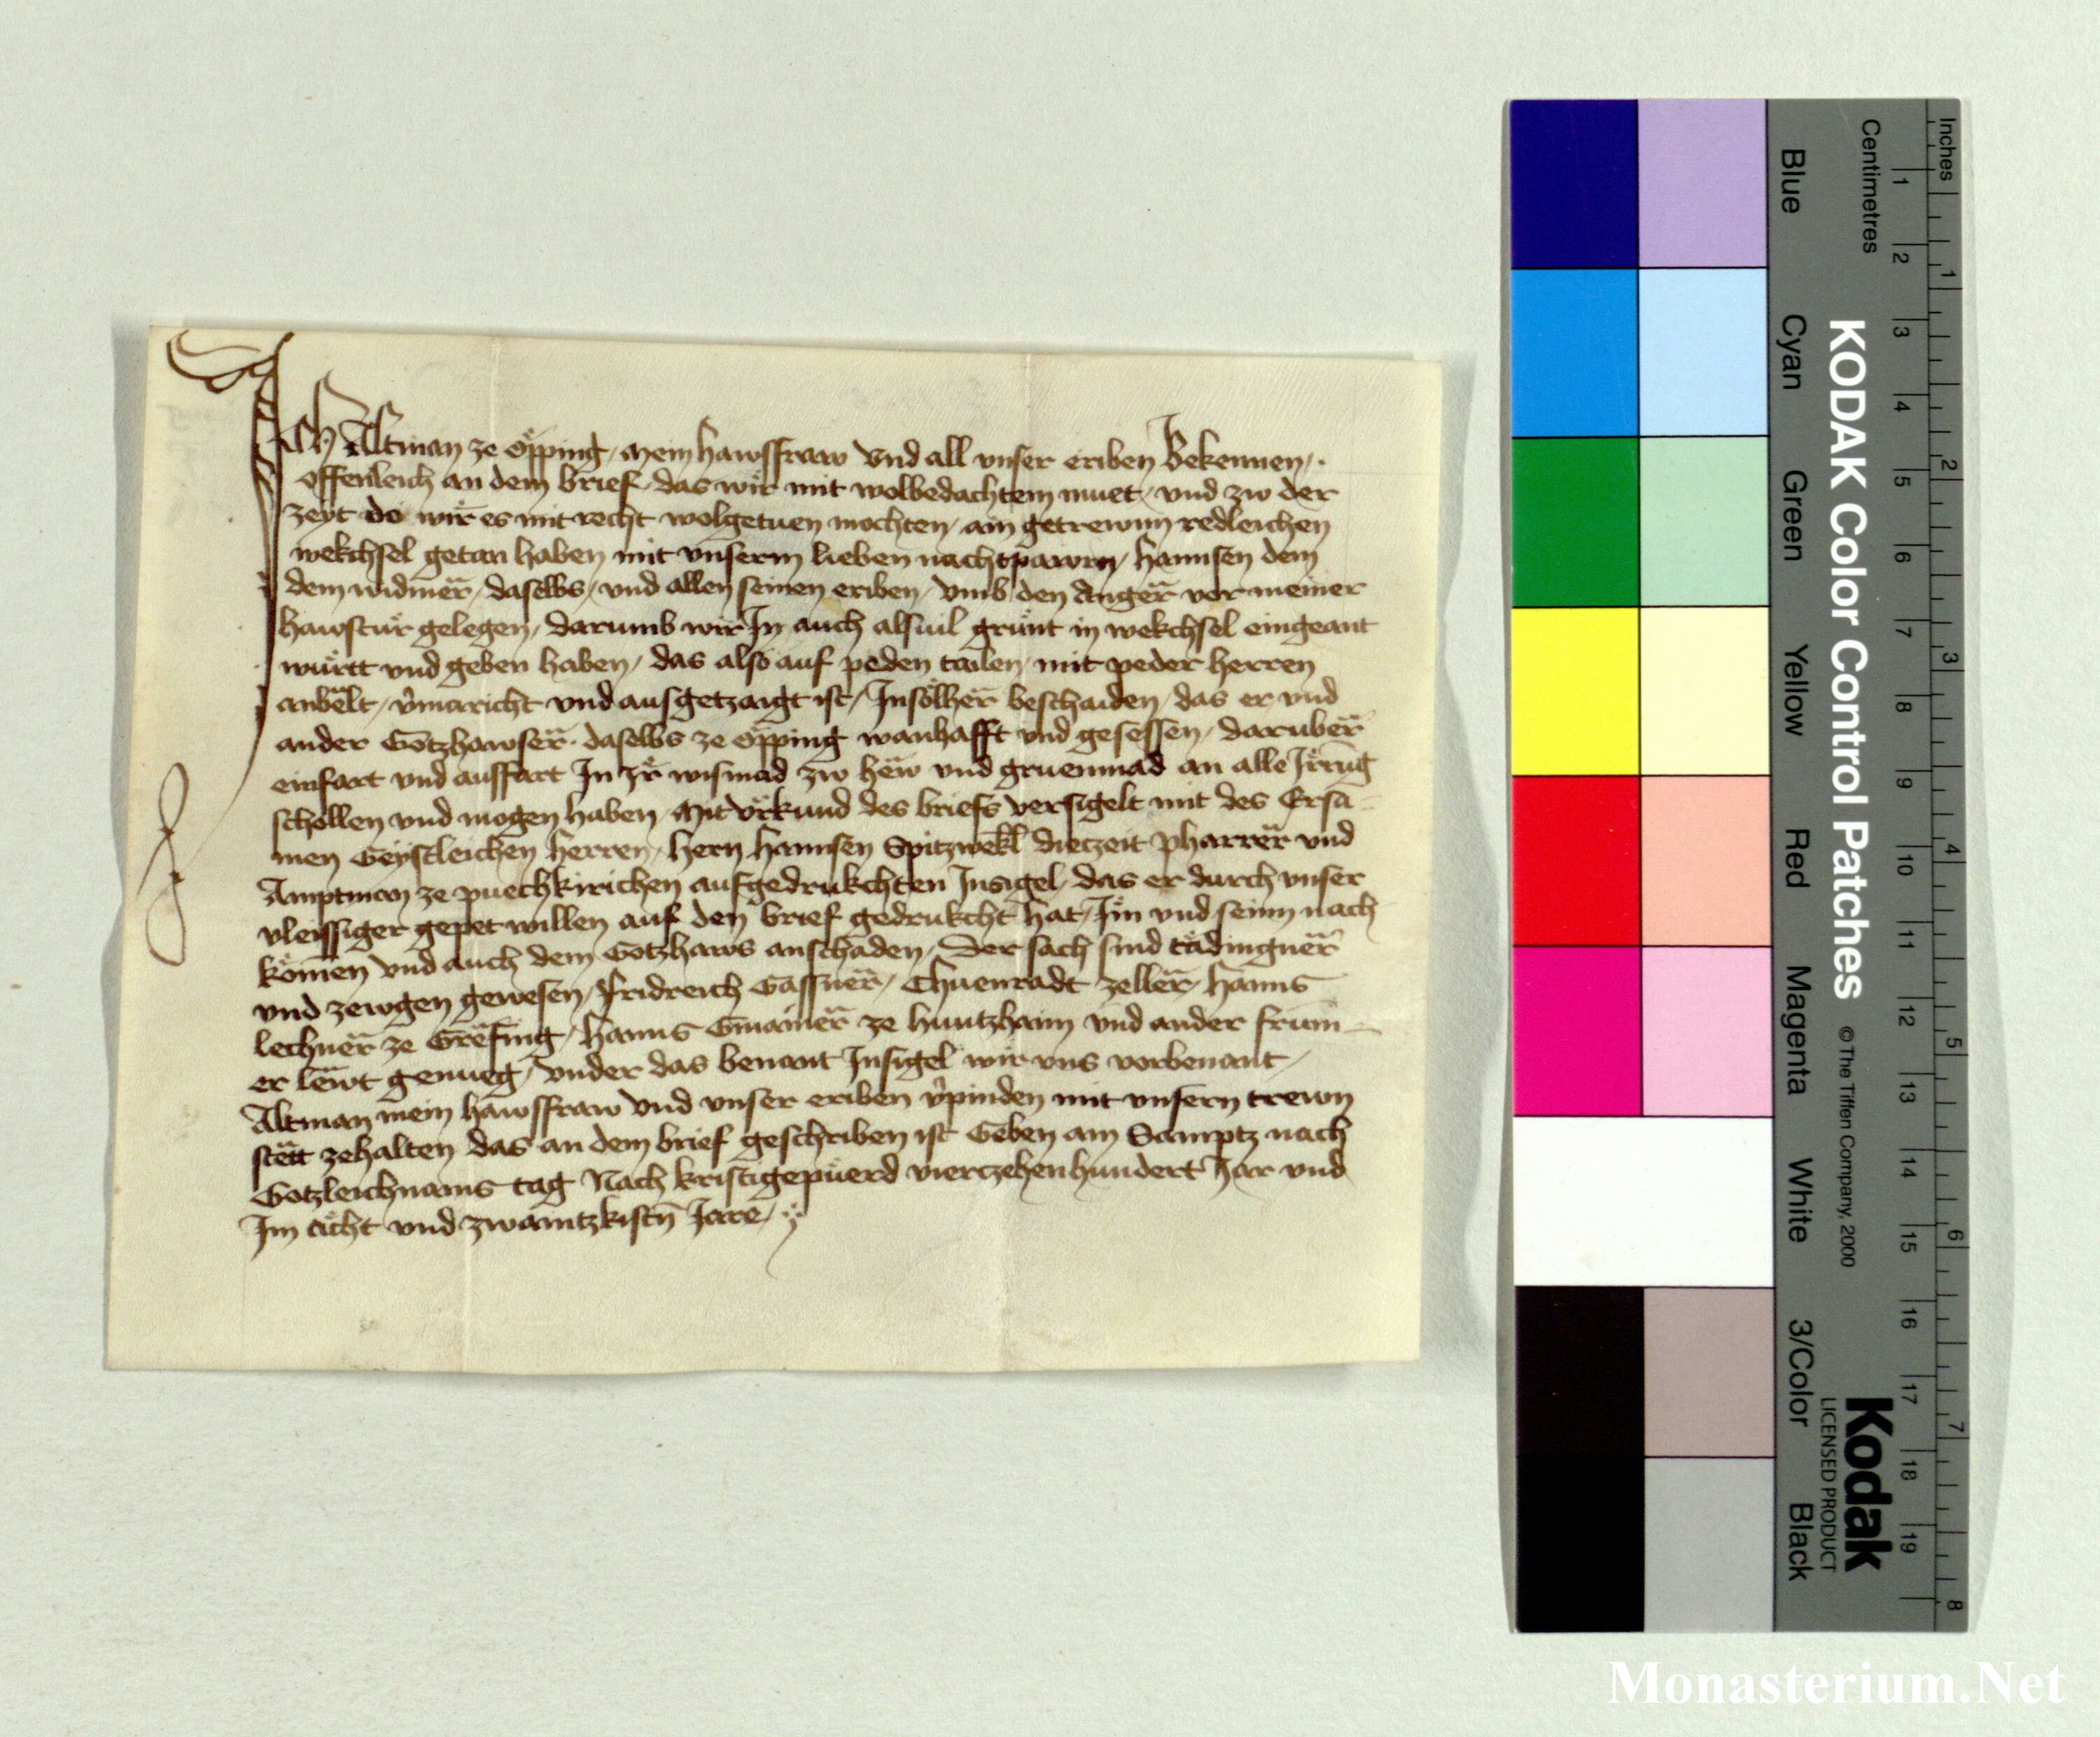 Ich Altman ze Öpping, mein hawsfraw vnd all vnser eriben Bekennen,
offenleich an dem brief das wir mit wolbedachtem muet, vnd zw der
zeyt do wir es mit recht wolgetuen mochten, ain getrewnn redleichen
wekchsel getan haben mit vnserm lieben nachtpawrn, hannsen dem
dem widmer, daselbs, vnd allen seinen eriben, vmb den Anger vor meiner
hawstür gelegen, darumb wir In auch alsuil grünt in wekchsel eingeant
württ vnd geben haben, das also auf peden tailen, mit peder herren
anbelt, vmaricht vnd ausgetzaigt ist, Insölher beschaiden, das er vnd
ander Gotzhawser daselbs ze öpping wanhafft vnd gesessen, daruber
einfart vnd ausffart In Ir wismad zw hew vnd gruenmad an alle Irrung
schollen vnd mogen haben, Mit vrkund des briefs versigelt mit des Ersa=
men Geystleichen herren, hern hannsen Spitzwekl diezeit pharrer vnd
Amptman ze puechkirichen aufgedrukchten Insigel, das er durch vnser
vleissiger gepet willen auf den brief gedrukcht hat, Im vnd seinn nach
kömen vnd auch dem Gotzhaws anschaden, Der sach sind tädingner
vnd zewgen gewesen, fridreich Gassner, Chuenradt zeller, hanns
lechner ze Gräfing, hanns Gmainer ze huntzhaim vnd ander frum=
er lewt genueg, vnder das benant Insigel wir vns vorbenant,
Altman mein hawsfraw vnd vnser eriben vpinden mit vnsern trewn
stätt zehalten das an dem brief geschriben ist Geben am Samptz nach
Gotzleichnams tag Nach kristigepuerd vierczehenhundert Jar vnd
Im acht vnd zwaintzkistn Jare,
Inches
Centimetres
1 2 3 4 5 6 7 8 9 10 11 12 13 14 15 16 17 18 19
1 2 3 4 5 6 7 8
KODAK Color Control Patches © The Tiffen Company, 2000
Kodak
LICENSED PRODUCT
Blue Cyan Green Yellow Red Magenta White 3/Color Black
Monasterium.Net